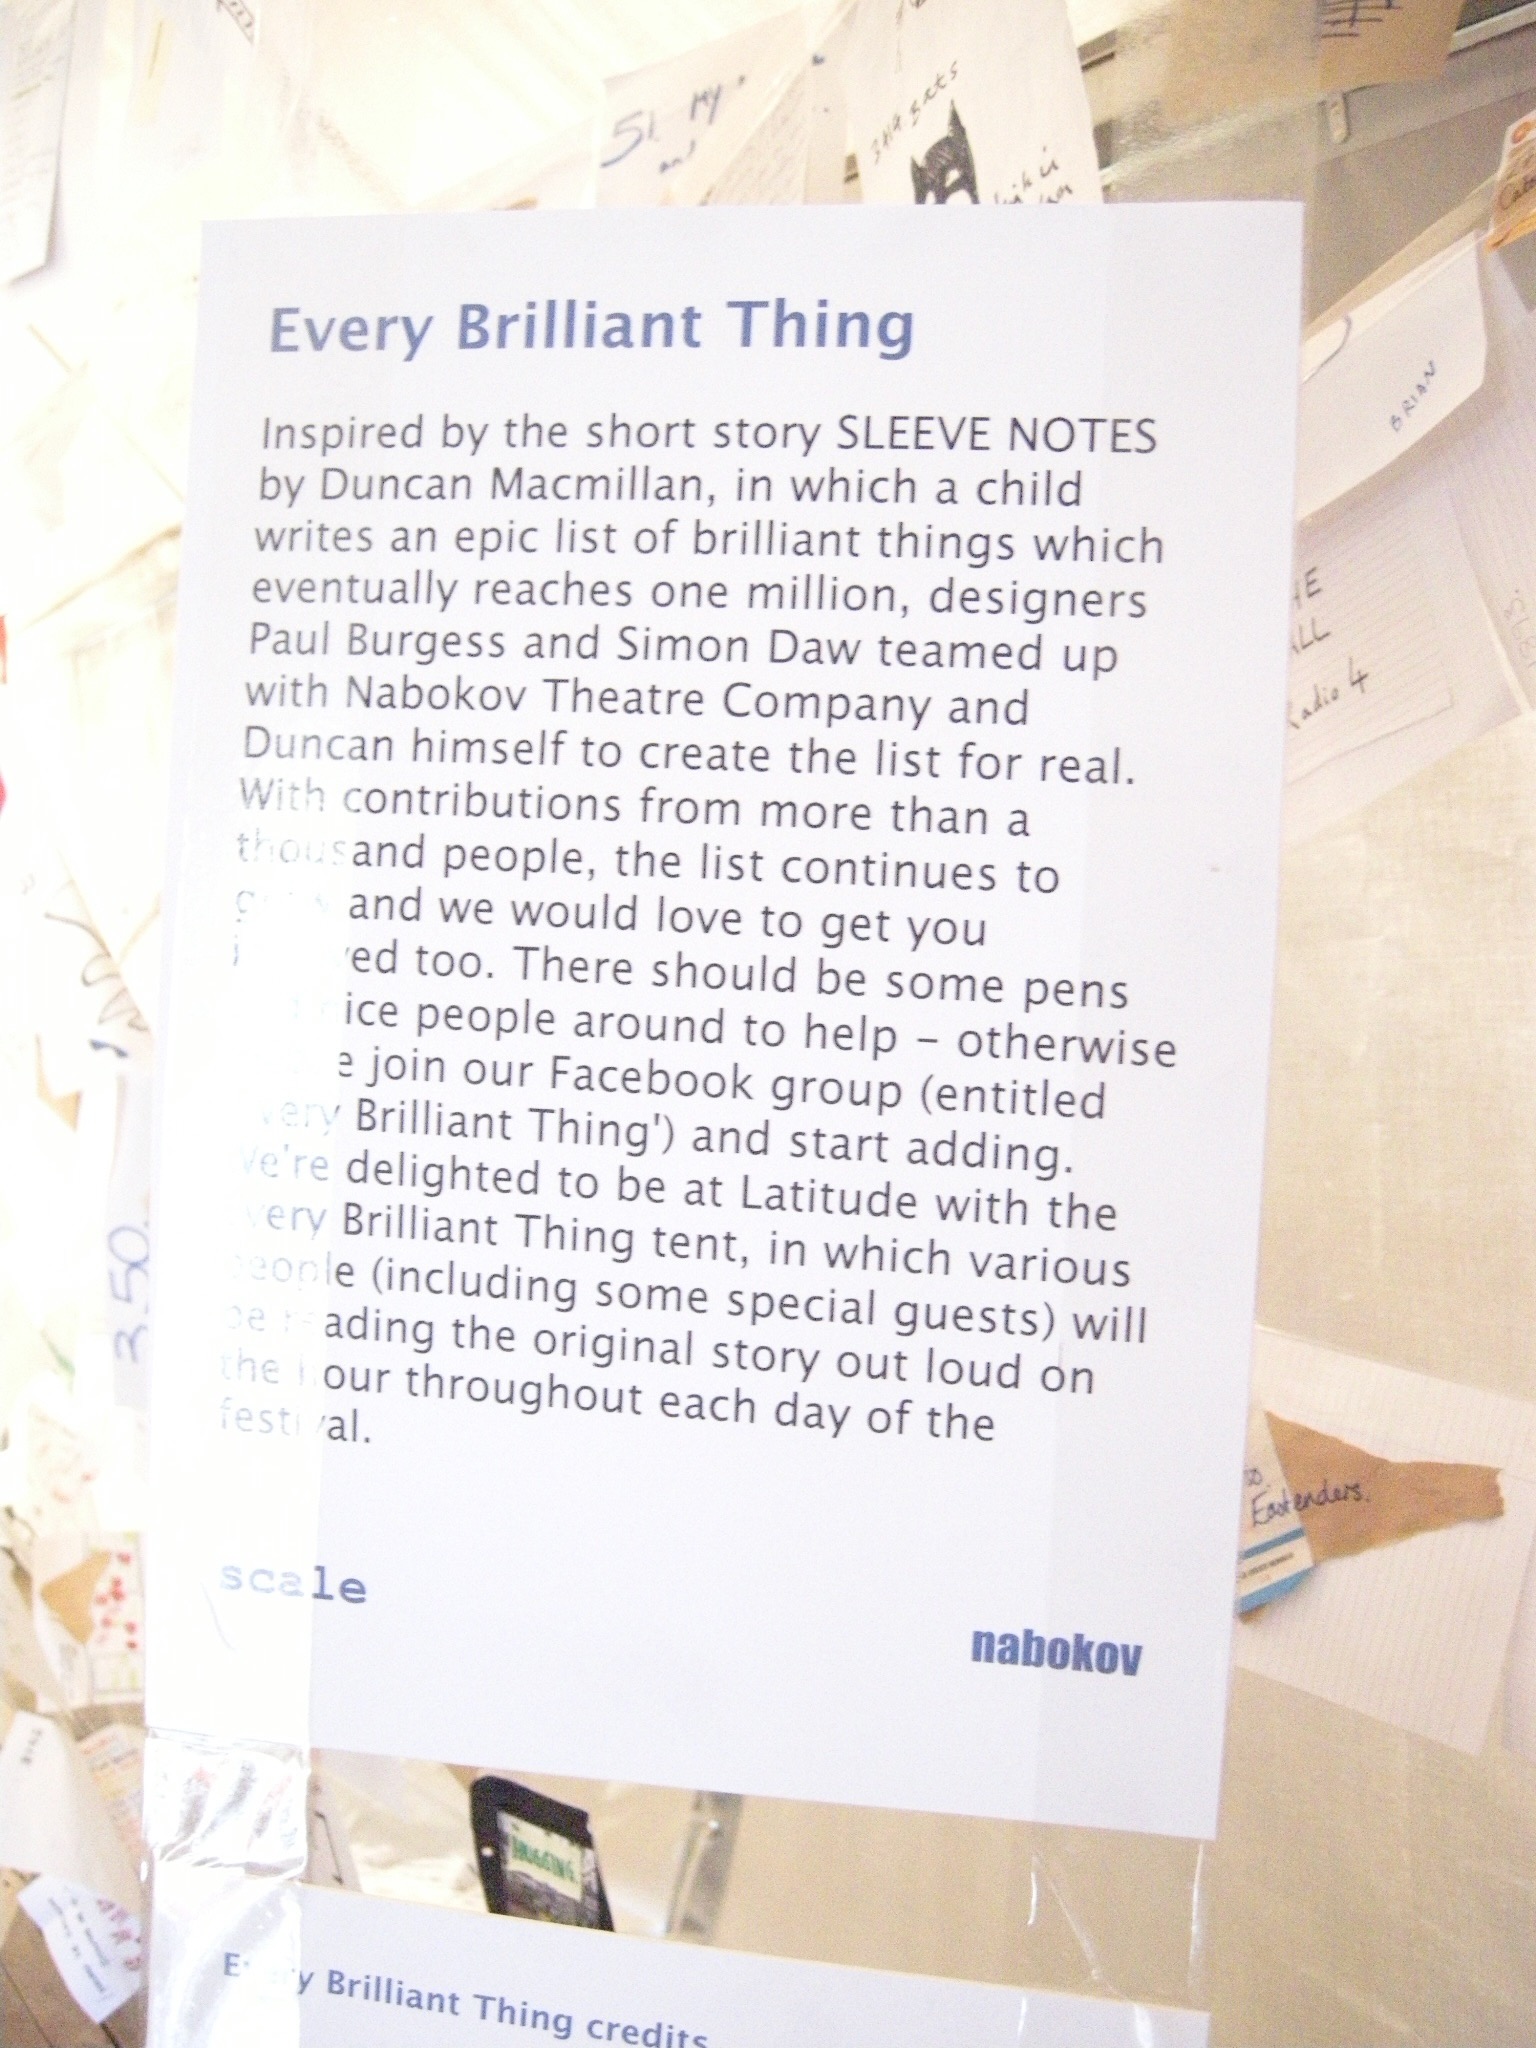 51. My
and
3419. Bats
Every Brilliant Thing
Inspired by the short story SLEEVE NOTES
by Duncan Macmillan, in which a child
writes an epic list of brilliant things which
eventually reaches one million, designers
Paul Burgess and Simon Daw teamed up
with Nabokov Theatre Company and
Duncan himself to create the list for real.
With contributions from more than a
thousand people, the list continues to
and we would love to get you
too. There should be some pens
people around to help – otherwise
join our Facebook group (entitled
Brilliant Thing') and start adding.
We're delighted to be at Latitude with the
Every Brilliant Thing tent, in which various
people (including some special guests) will
be reading the original story out loud on
the hour throughout each day of the
festival.
scale
nabokov
BRIAN
Radio 4
350.
Eastenders.
HUGGING
Every Brilliant Thing credits